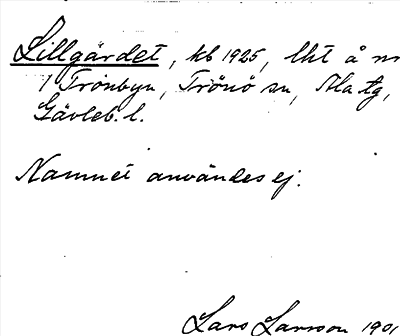 Lillgärdet, kb 1925, lht å nr
1 Trönbyn, Trönö sn, Ala tg,
Gävleb. l.
Namnet användes ej.
Lars Larsson 190